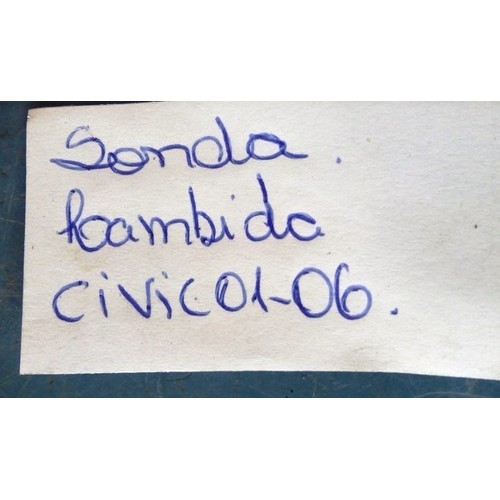 Sonda.
Lambida
Civic 01-06.